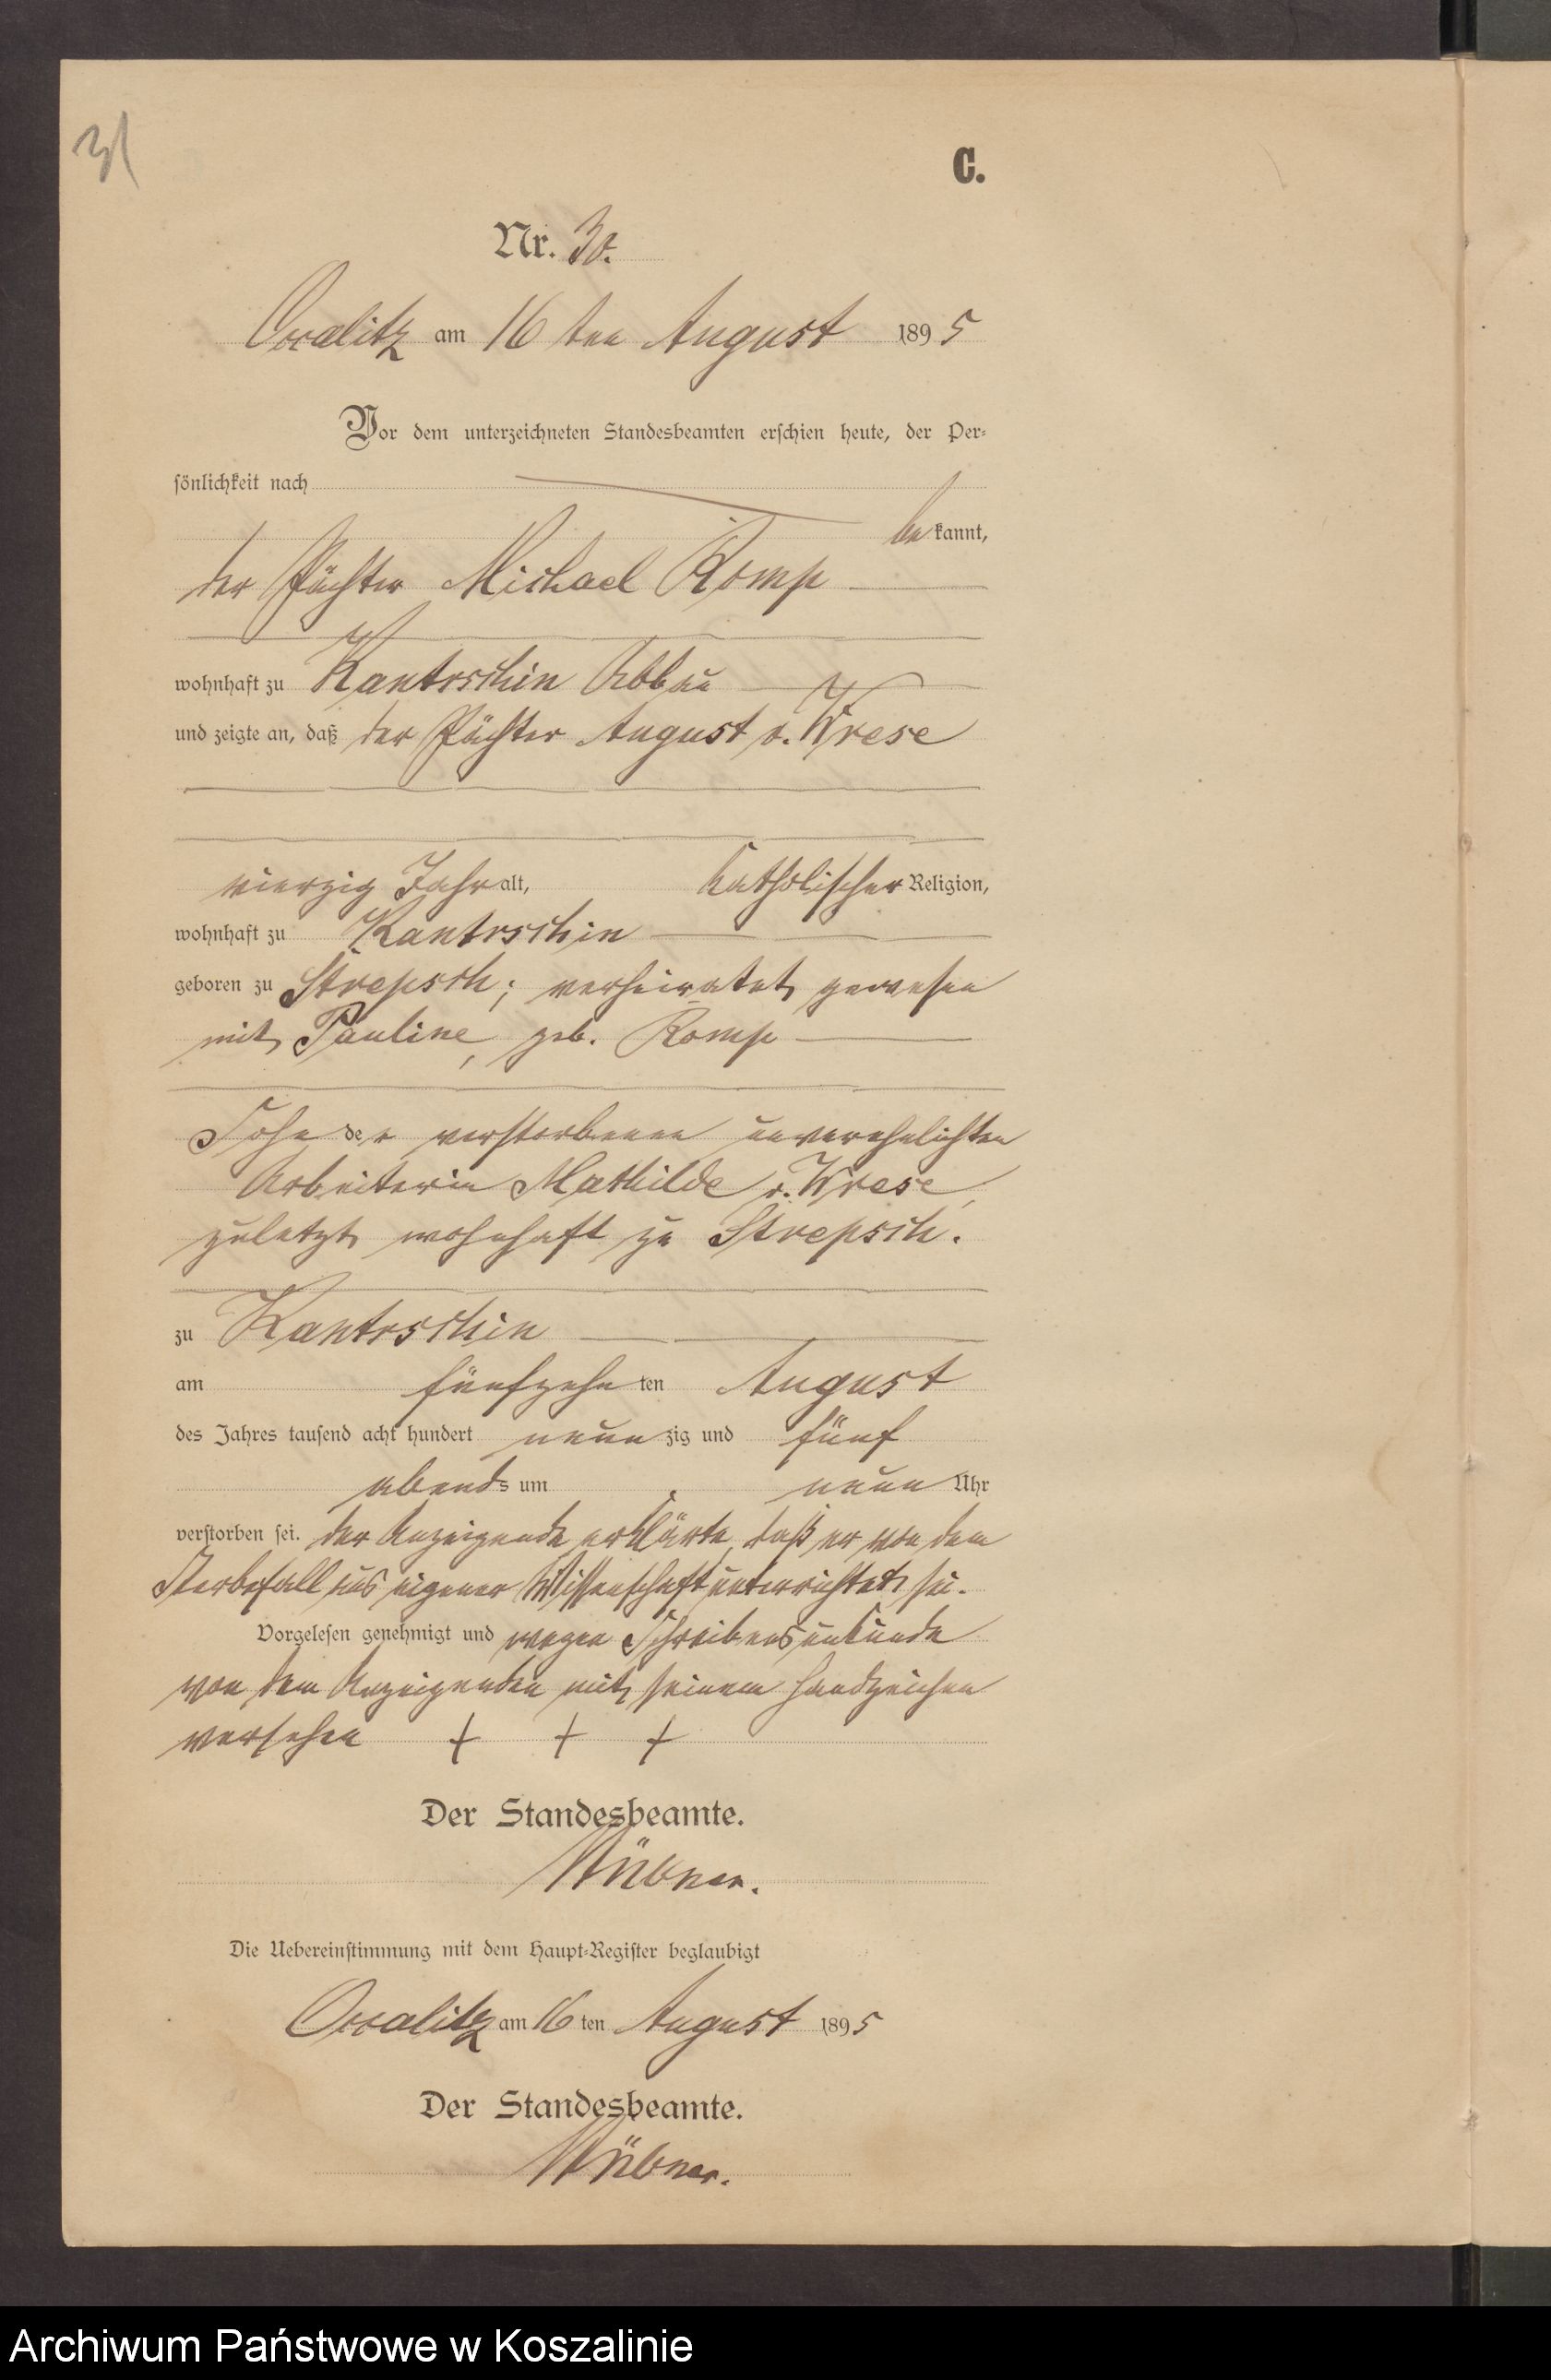 31
C.
Nr. 30.
Occalitz am 16 ten August 1895
Vor dem unterzeichneten Standesbeamten erschien heute, der Per-
sönlichkeit nach
bekannt,
der Pächter Michael Komp
wohnhaft zu Kantrschin Abbau
und zeigte an, daß der Pächter August v. Wrese
vierzig Jahr alt, katholischer Religion,
wohnhaft zu Kantrschin
geboren zu Strepsch; verheiratet gewesen
mit Pauline, geb. Komp
Sohn der verstorbenen unverehelichten
Arbeiterin Mathilde v. Wrese,
zuletzt wohnhaft zu Strepsch.
zu Kantrschin
am fünfzehnten August
des Jahres tausend acht hundert neunzig und fünf
abends um neun Uhr
verstorben sei. Der Anzeigende erklärte, daß er von dem
Sterbefall aus eigener Wissenschaft unterrichtet sei.
Vorgelesen genehmigt und wegen Schreibensunkunde
von dem Anzeigenden mit seinem Handzeichen
versehen + + +
Der Standesbeamte.
Die Uebereinstimmung mit dem Haupt-Register beglaubigt
Occalitz am 16 ten August 1895
Der Standesbeamte.
Archiwum Państwowe w Koszalinie